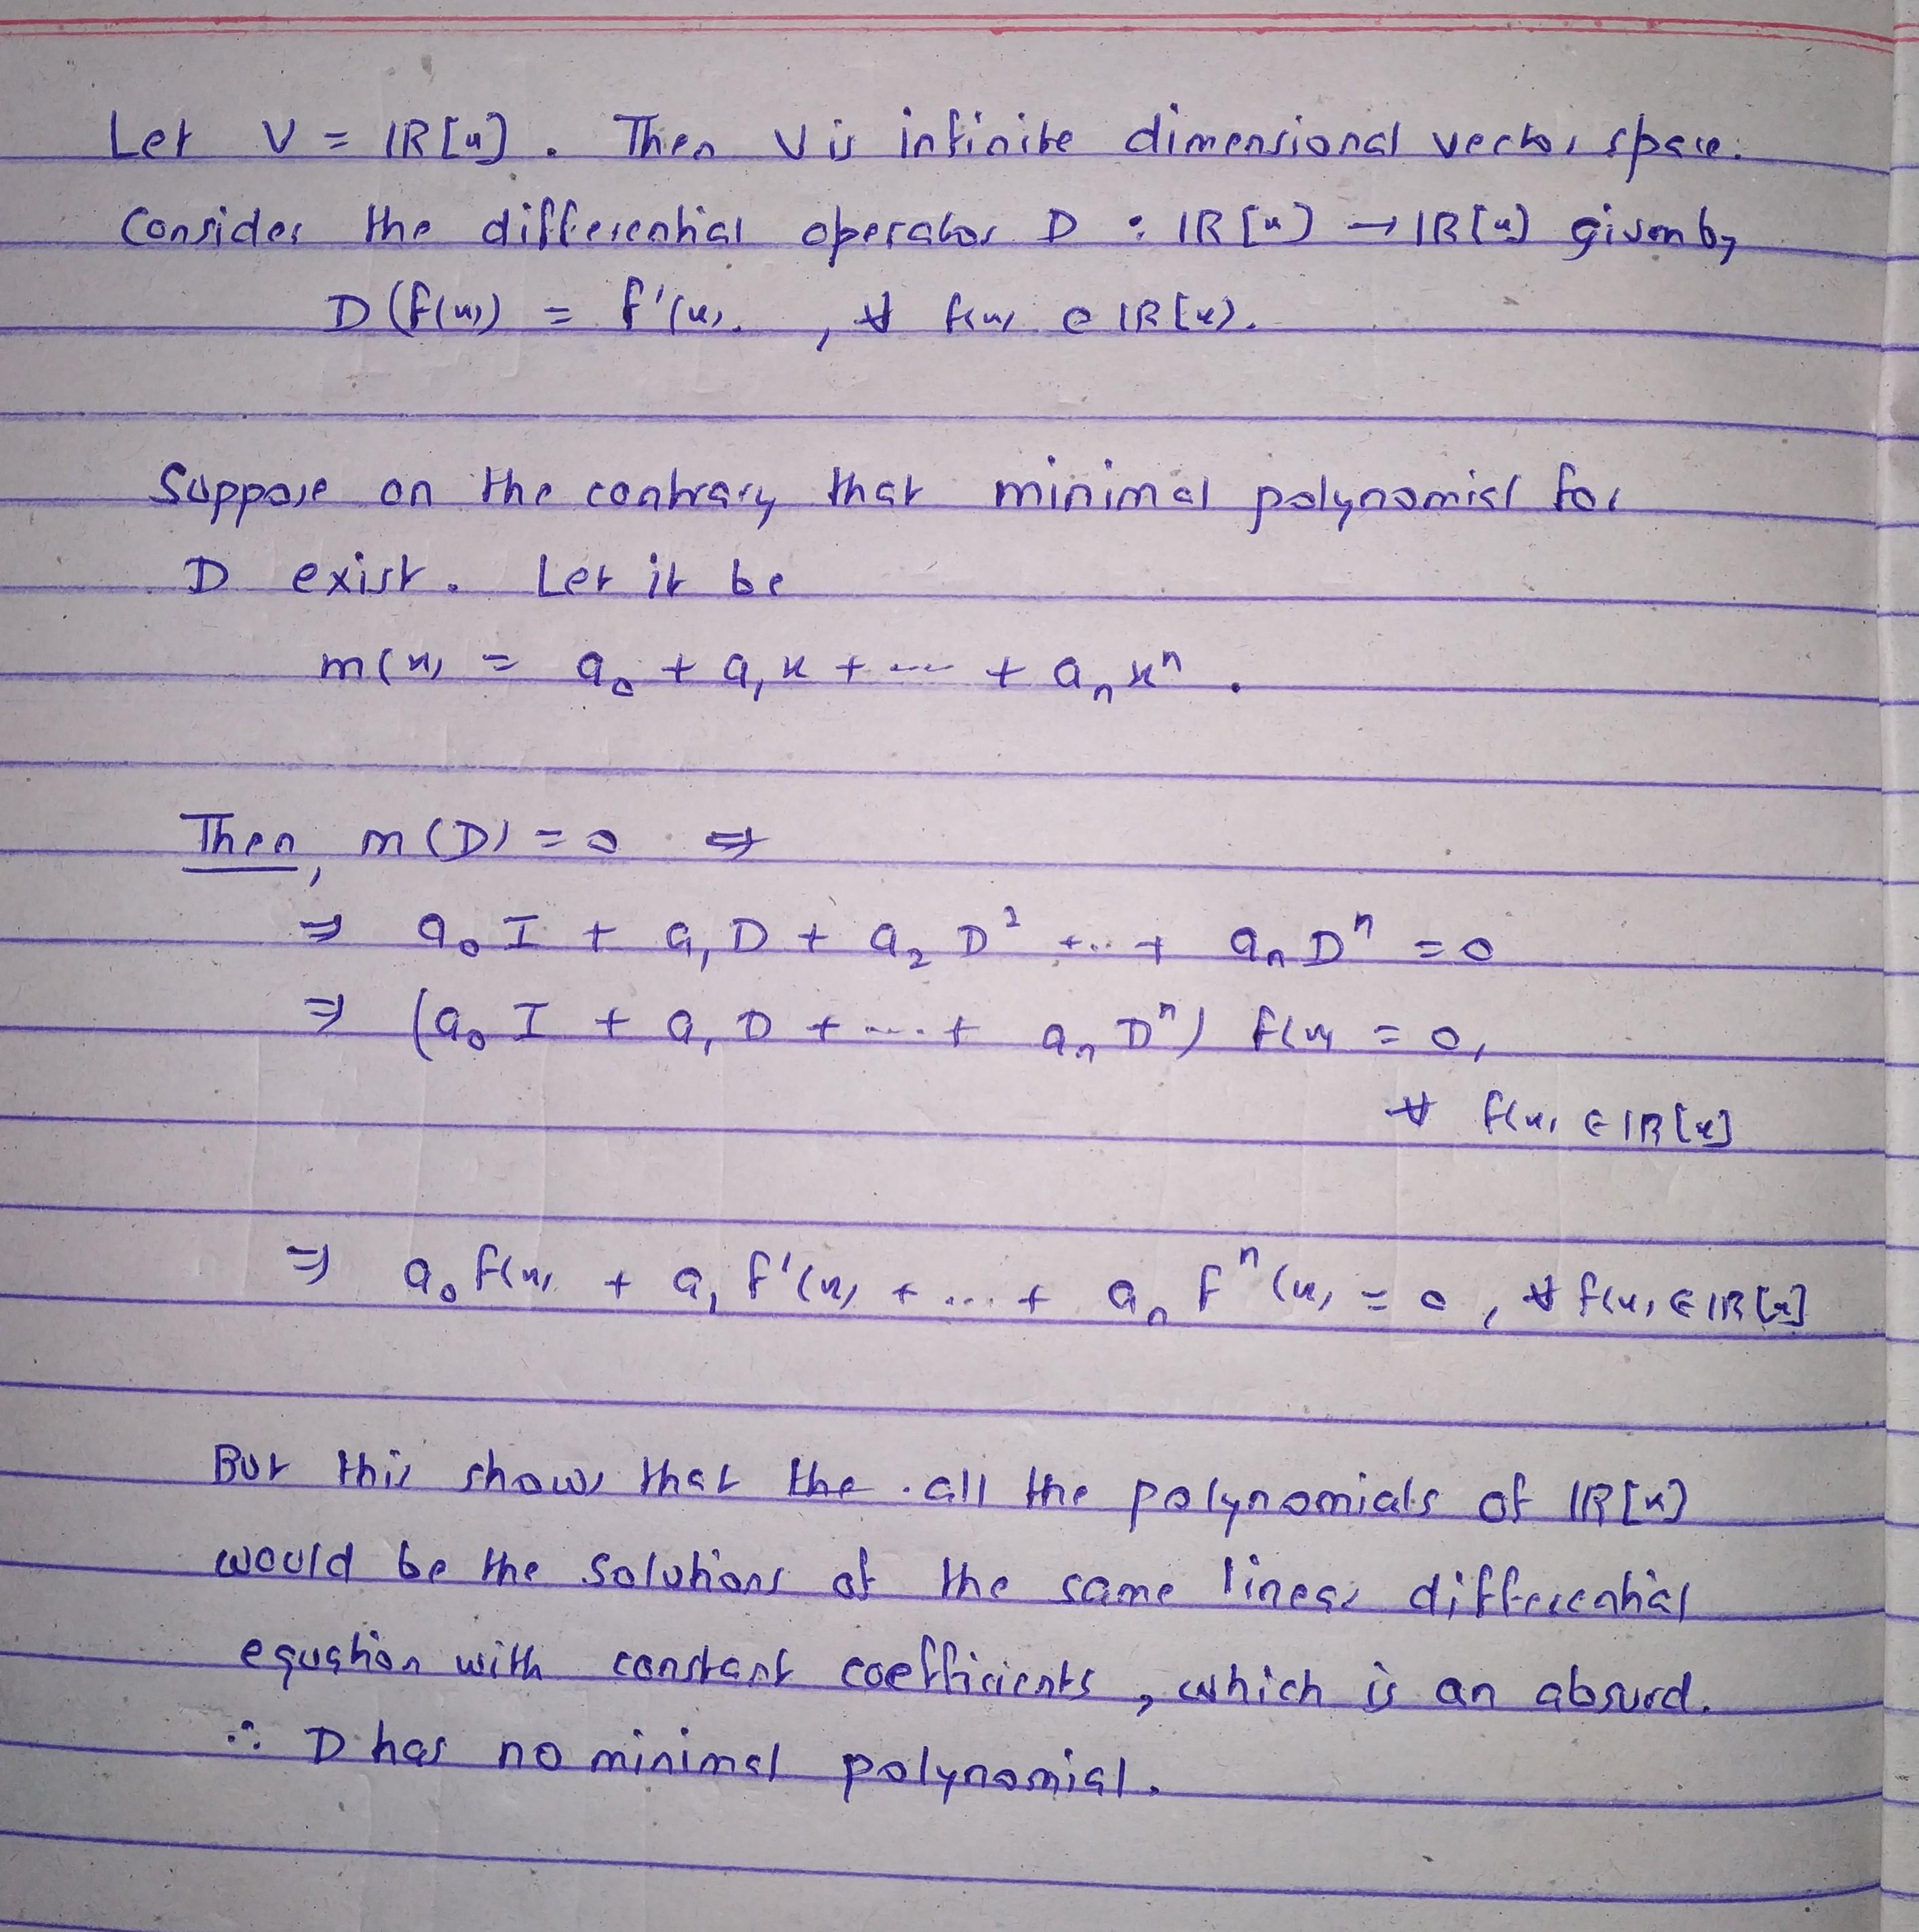 Let V = IR[x]. Then V is infinite dimensional vector space.
Consider the differential operator D : IR[x] → IR[x] given by
D(f(x)) = f'(x), ∀ f(x) ∈ IR[x].
Suppose on the contrary that minimal polynomial for
D exist. Let it be
m(x) = a₀ + a₁x + --- + aₙxⁿ.
Then, m(D) = 0 ⇒
⇒ a₀ I + a₁ D + a₂ D² +..+ aₙ Dⁿ = 0
⇒ (a₀ I + a₁ D + ...+ aₙ Dⁿ) f(x) = 0,
∀ f(x) ∈ IR[x]
⇒ a₀ f(x) + a₁ f'(x) + ... + aₙ fⁿ(x) = 0, ∀ f(x) ∈ IR[x]
But this shows that the all the polynomials of IR[x]
would be the solutions of the same linear differential
equation with constant coefficients, which is an absurd.
∴ D has no minimal polynomial.